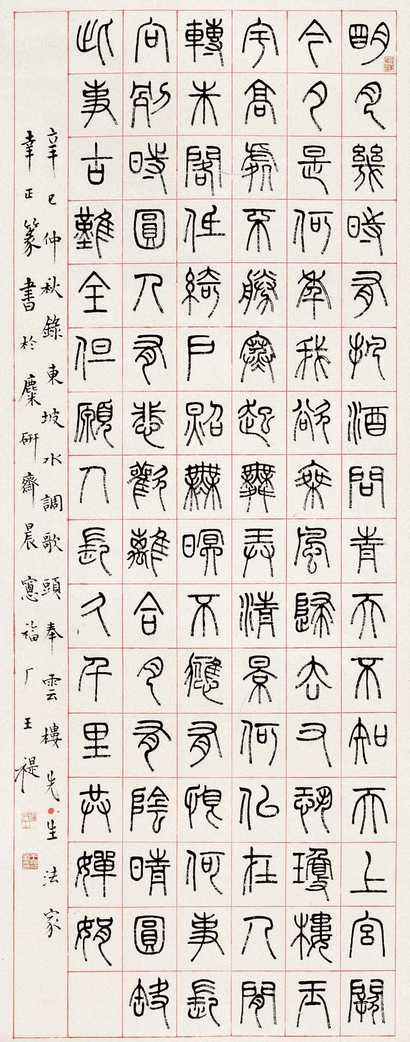 明月幾時有把酒問青天不知天上宮闕
今夕是何年我欲乘風歸去又恐瓊樓玉
宇高處不勝寒起舞弄清景何似在人閒
轉朱閣低綺戶照無瞑不應有恨何事長
向別時圓人有悲歡離合月有陰晴圓缺
此事古難全但願人長久千里共嬋娟
辛巳仲秋錄東坡水調歌頭奉雲樓先生法家
幸正篆書於麋研齋晨窻福厂王禔